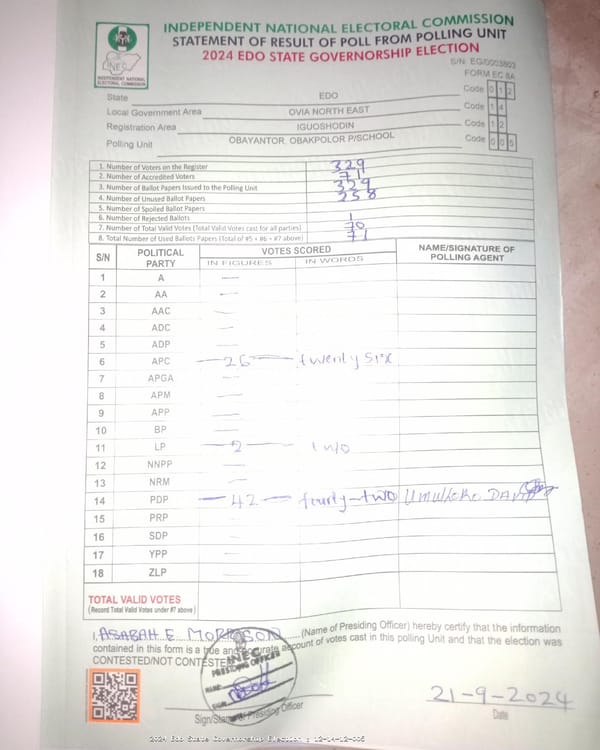 INDEPENDENT NATIONAL ELECTORAL COMMISSION
STATEMENT OF RESULT OF POLL FROM POLLING UNIT
2024 EDO STATE GOVERNORSHIP ELECTION
INEC
INDEPENDENT NATIONAL ELECTORAL COMMISSION
S/N: EG/0003803
FORM EC 8A
State EDO Code 0 1 2
Local Government Area OVIA NORTH EAST Code 1 4
Registration Area IGUOSHODIN Code 1 2
Polling Unit OBAYANTOR, OBAKPOLOR P/SCHOOL Code 0 0 5
1. Number of Voters on the Register 329
2. Number of Accredited Voters 71
3. Number of Ballot Papers Issued to the Polling Unit 329
4. Number of Unused Ballot Papers 258
5. Number of Spoiled Ballot Papers
6. Number of Rejected Ballots 1
7. Number of Total Valid Votes (Total Valid Votes cast for all parties) 70
8. Total Number of Used Ballots Papers (Total of #5 + #6 + #7 above) 71
S/N POLITICAL PARTY VOTES SCORED NAME/SIGNATURE OF POLLING AGENT
IN FIGURES IN WORDS
1 A —
2 AA —
3 AAC —
4 ADC —
5 ADP —
6 APC — 26 — twenty six
7 APGA —
8 APM —
9 APP —
10 BP —
11 LP — 2 — two
12 NNPP —
13 NRM —
14 PDP — 42 — fourty-two
15 PRP —
16 SDP —
17 YPP —
18 ZLP —
TOTAL VALID VOTES
(Record Total Valid Votes under #7 above)
I, ASABAH E MORRISON (Name of Presiding Officer) hereby certify that the information
contained in this form is a true and accurate account of votes cast in this polling Unit and that the election was
CONTESTED/NOT CONTESTED
INEC
PRESIDING OFFICER
NAME
SIGN
21-9-2024
Sign/Stamp of Presiding Officer Date
2024 Edo State Governorship Election : 12-14-12-005